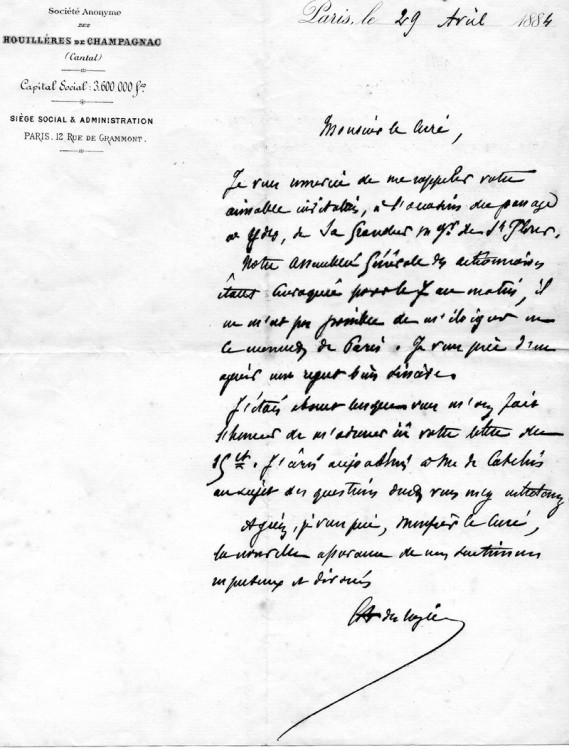 Société Anonyme
DES
HOUILLÈRES DE CHAMPAGNAC
(Cantal)
Capital Social: 3.600.000 fcs
SIÈGE SOCIAL & ADMINISTRATION
PARIS. 12 RUE DE GRAMMONT.
Paris, le 29 Avril 1884
Monsieur le Curé,
Je vous remercie de me rappeler votre
aimable invitation, à l'occasion du passage
à Ydes, de Sa Grandeur Mgr de St Flour.
Notre Assemblée Générale des actionnaires
étant convoquée pour le 7 au matin, il
ne m'est pas possible de m'éloigner en
ce moment de Paris. Je vous prie d'en
agréer mes regrets bien sincères.
J'étais absent lorsque vous m'avez fait
l'honneur de m'adresser ici votre lettre du
15 ct. J'écris aujourd'hui à Mr de
au sujet des questions dont vous m'y entretenez
Agréez, je vous prie, Monsieur le Curé,
la nouvelle assurance de mes sentiments
respectueux et dévoués